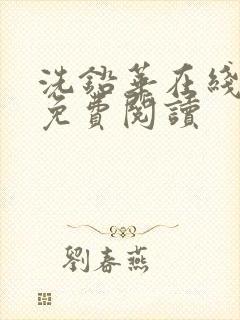 洗鉛華在綫
免費閱讀
劉春燕